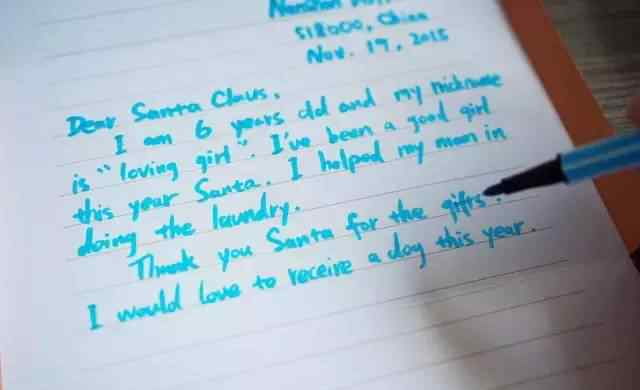 518000, China
Nov. 19, 2015
Dear Santa Claus,
I am 6 years old and my nickname
is "loving girl". I've been a good girl
this year Santa. I helped my mom in
doing the laundry.
Thank you Santa for the gifts.
I would love to receive a dog this year.